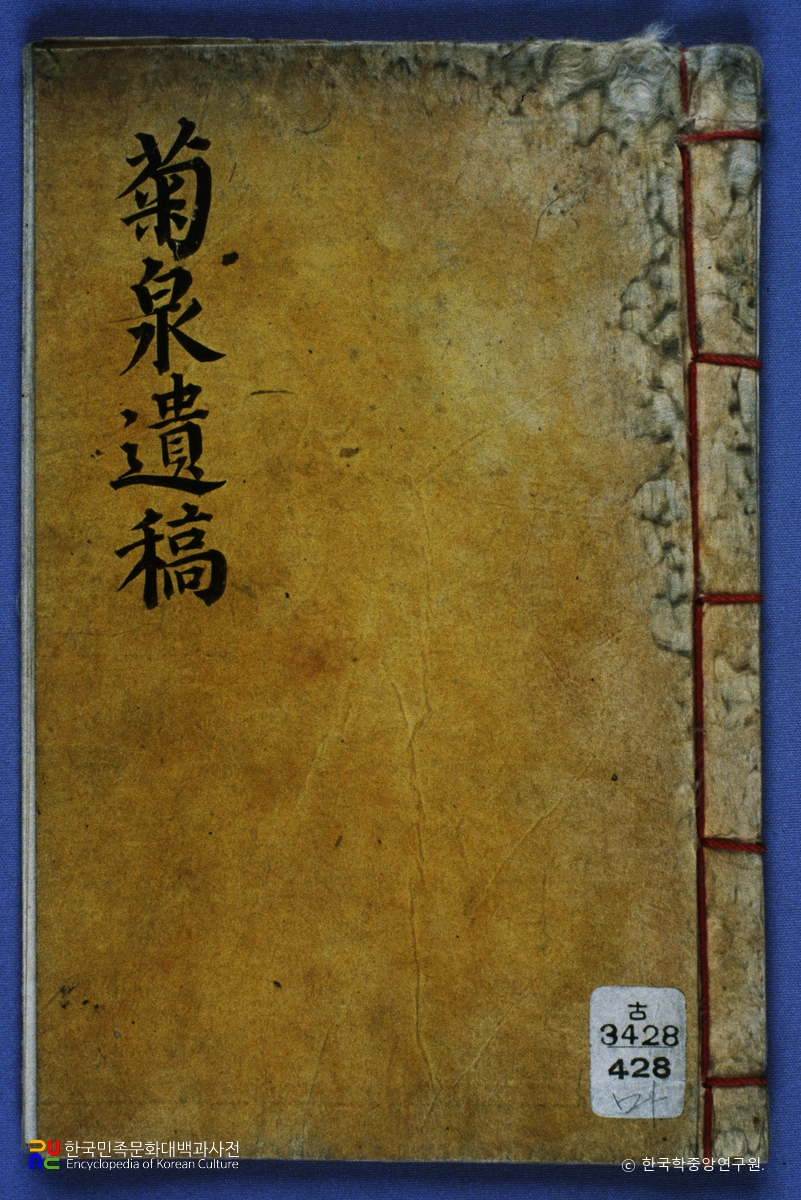 菊泉遺稿
古
3428
428
마
한국민족문화대백과사전
Encyclopedia of Korean Culture
© 한국학중앙연구원.